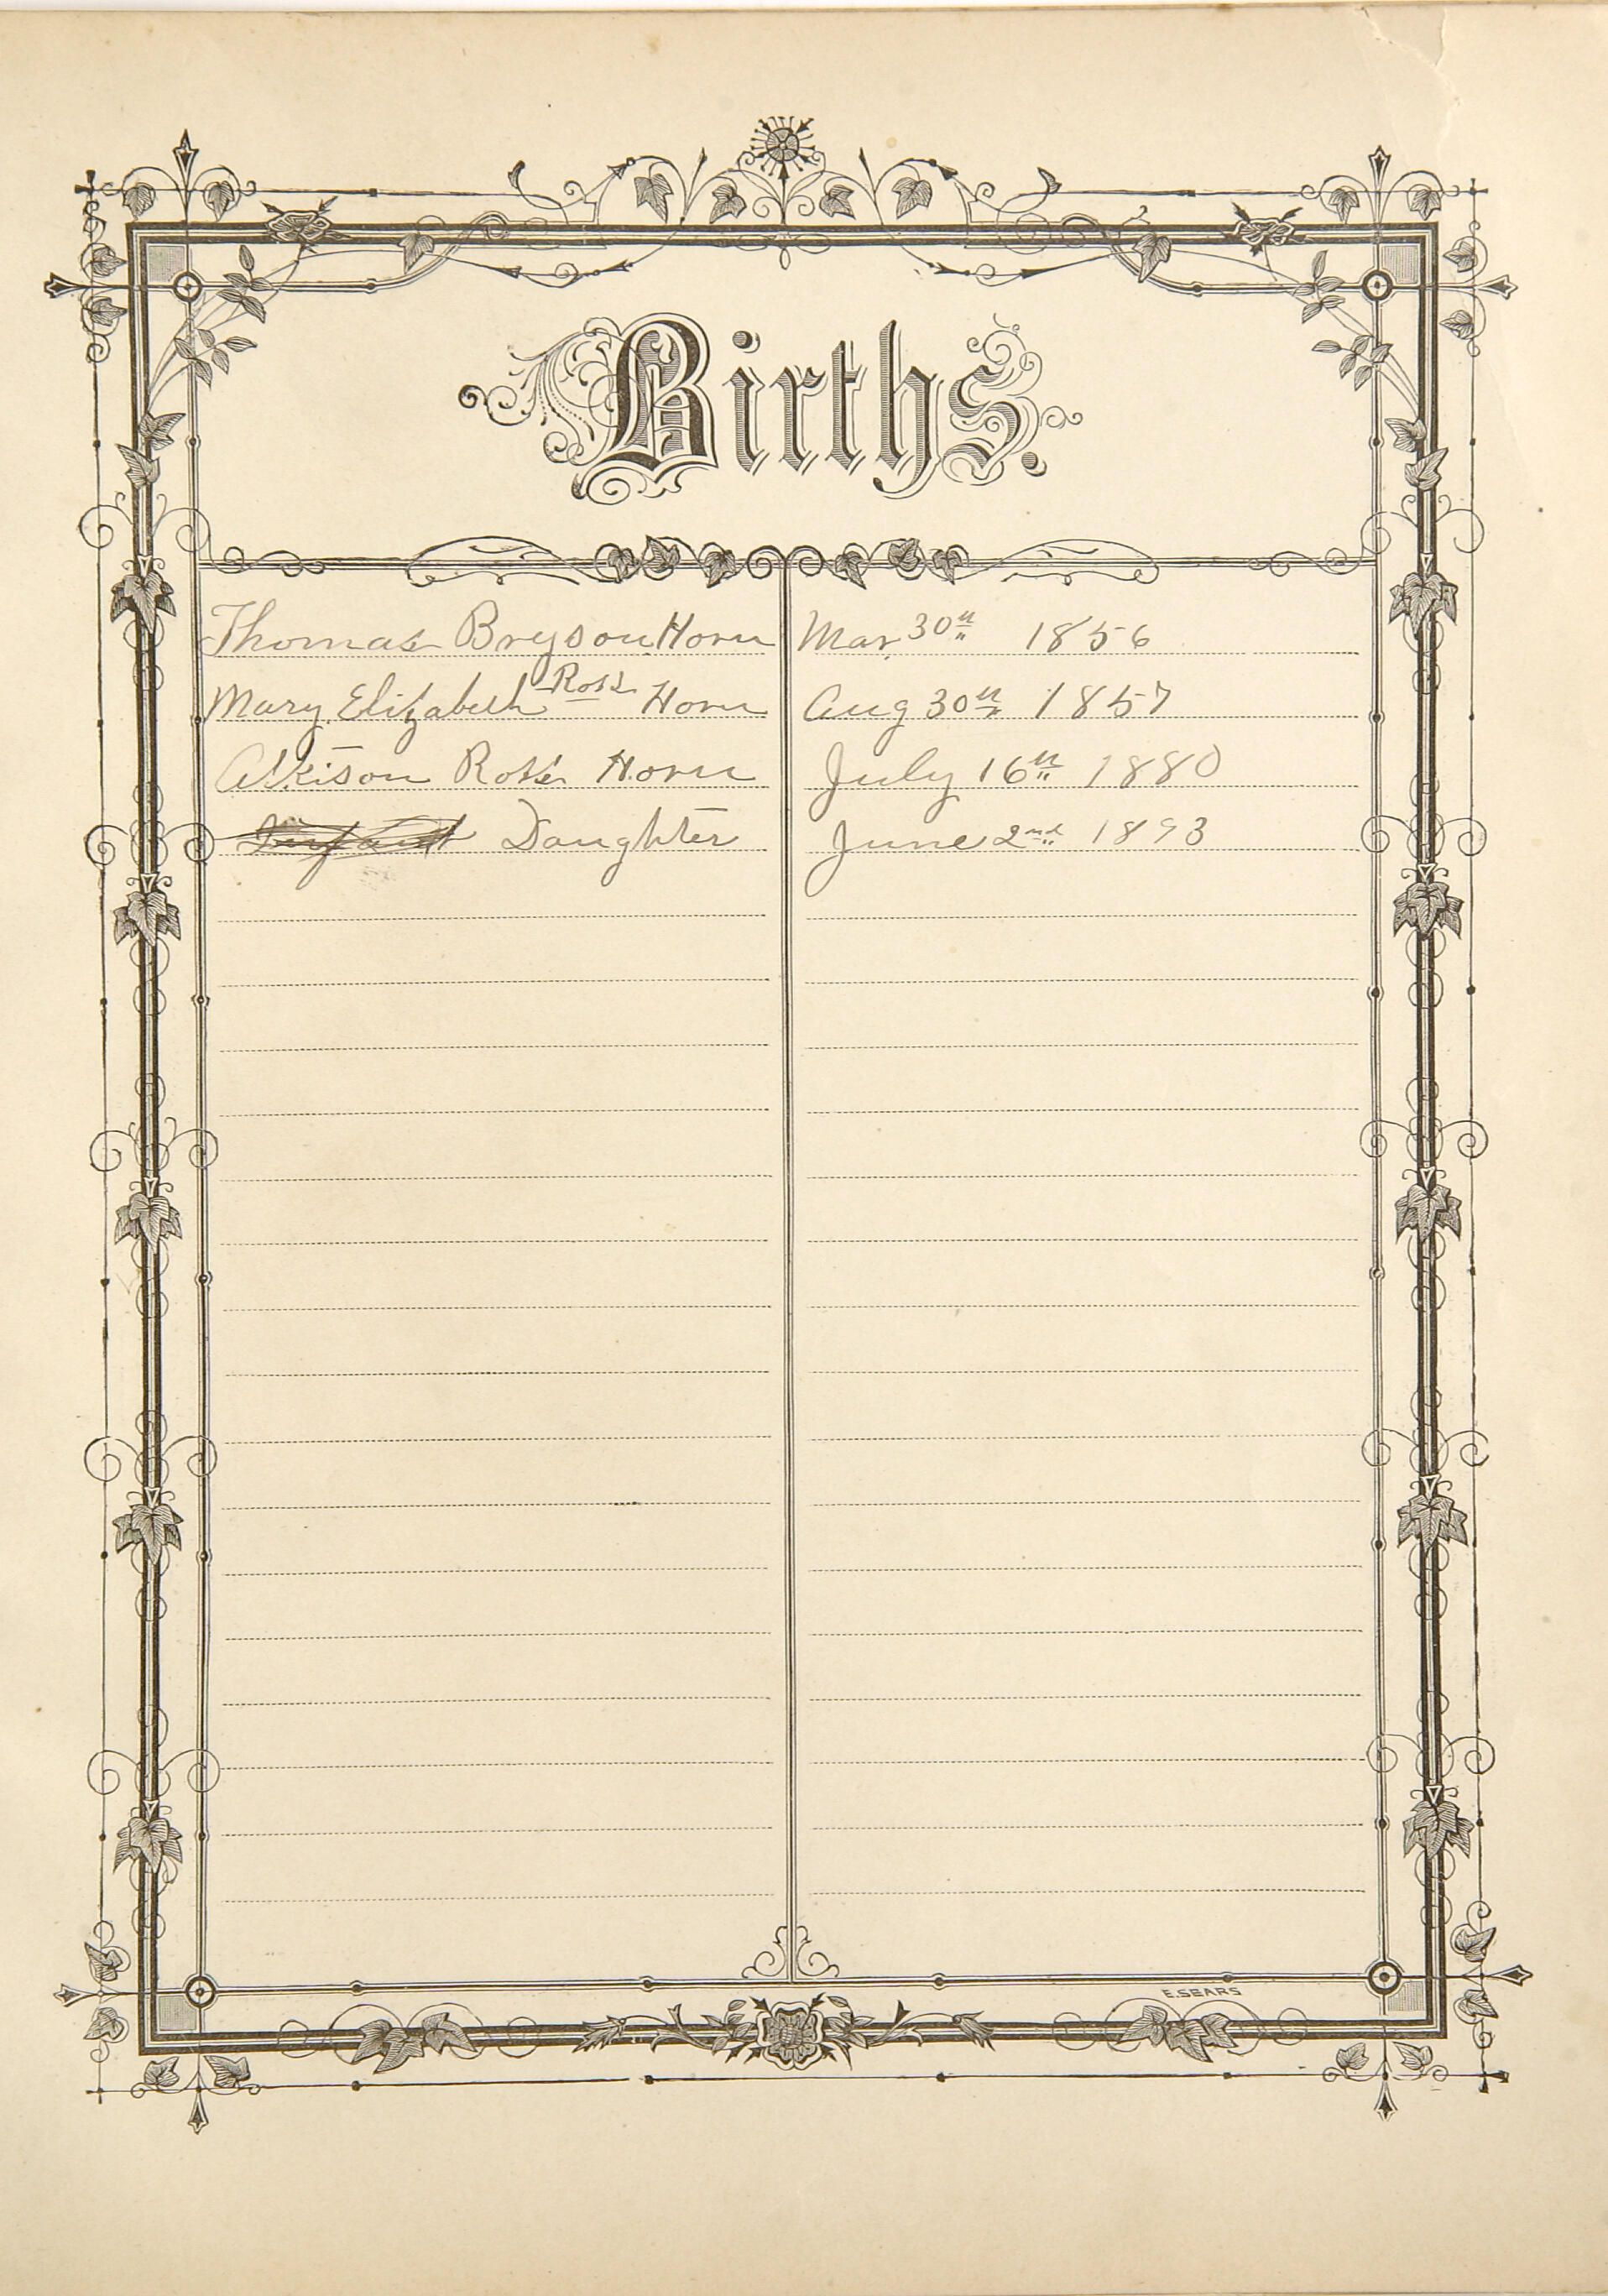 Births.
Thomas Bryson Horn Mar. 30th 1856
Mary Elizabeth Ross Horn Aug 30th 1857
Atkison Ross Horn July 16th 1880
Infant Daughter June 2nd 1893
E. SEARS